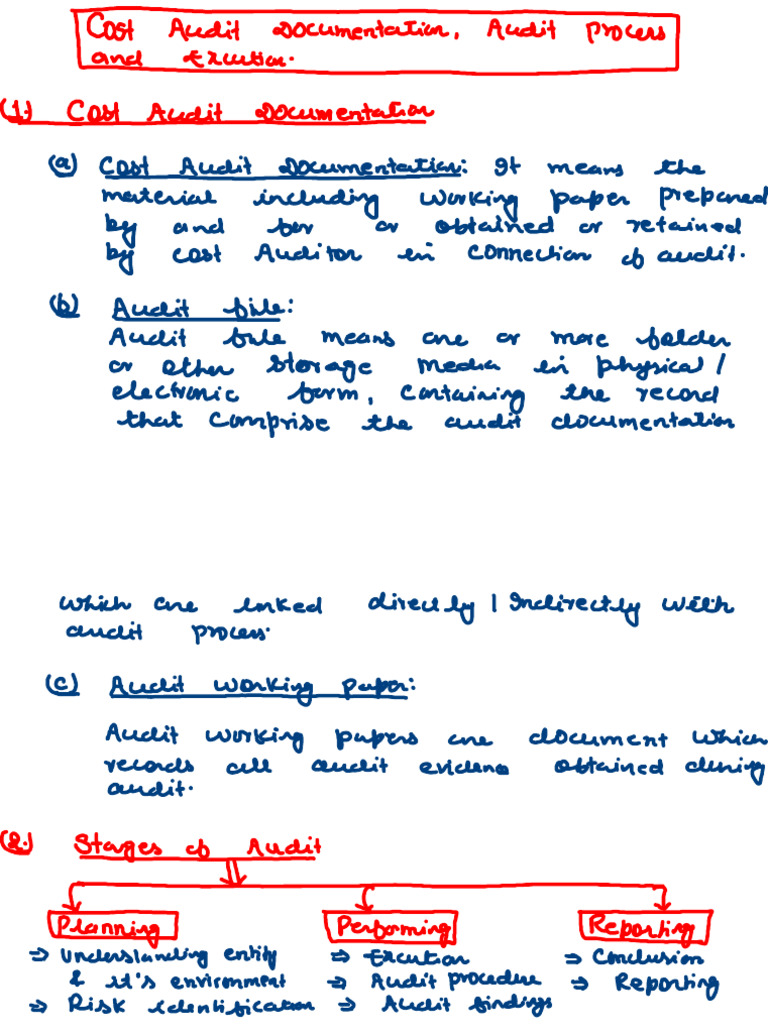 Cost Audit Documentation, Audit process
and Excution.
(1.) Cost Audit Documentation
(a) Cost Audit Documentation: It means the
material including working paper prepared
by and for or obtained or retained
by cost Auditor in connection of audit.
(b) Audit file:
Audit file means one or more folder
or other storage media in physical/
electronic form, containing the record
that comprise the audit documentation
which are linked directly / Indirectly with
audit process.
(c) Audit working paper:
Audit working papers are document which
records all audit evidence obtained during
audit.
(2.) Stages of Audit
Planning Performing Reporting
⇒ Understanding entity ⇒ Excution ⇒ Conclusion
& it's environment ⇒ Audit procedure ⇒ Reporting
⇒ Risk identification ⇒ Audit findings